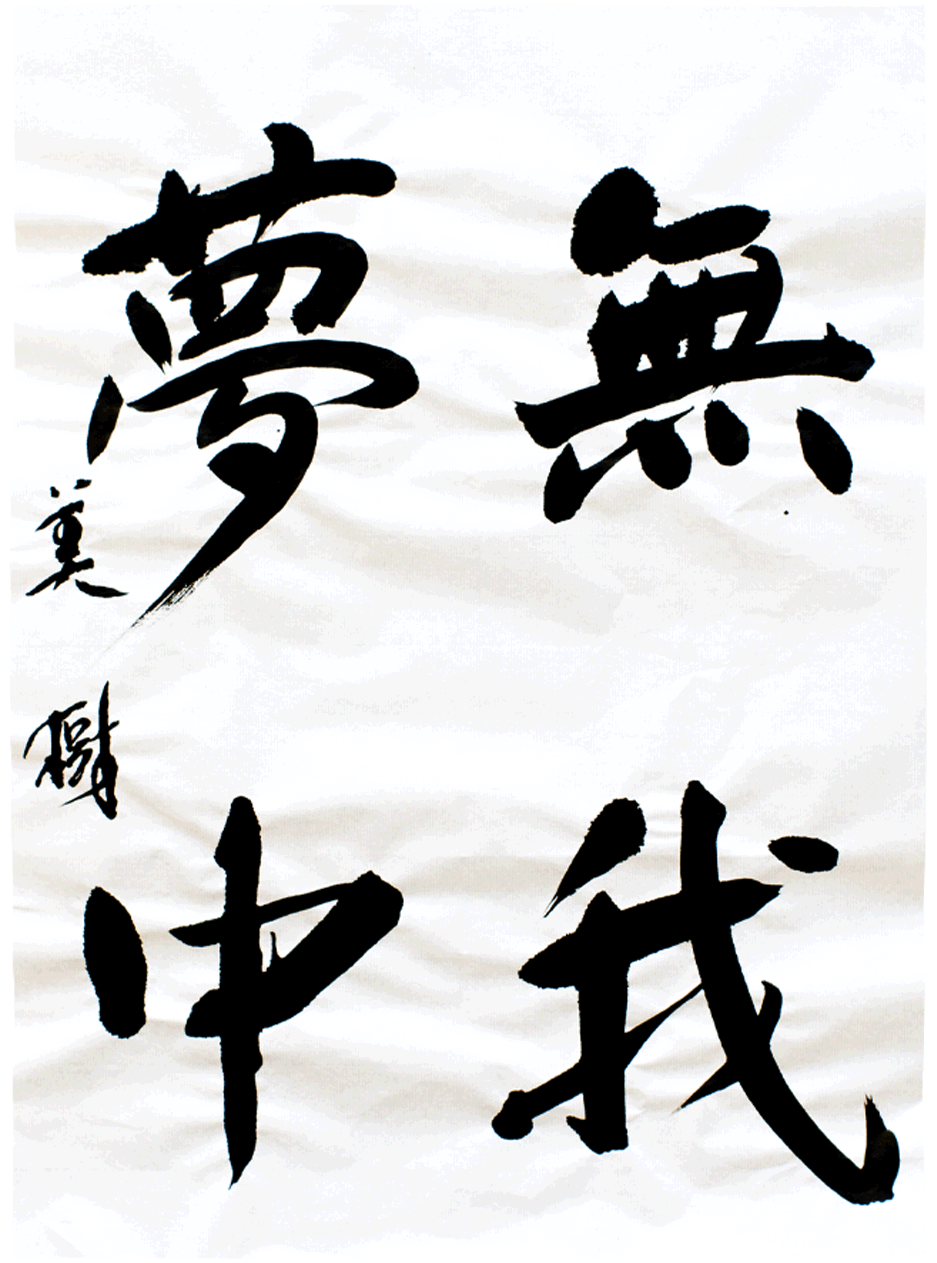 無我
夢中
美樹